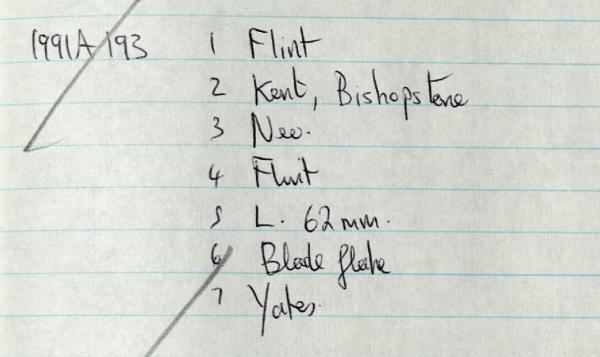 1991A 193 1 Flint
2 Kent, Bishopstone
3 Neo.
4 Flint
5 L. 62 mm.
6 Blade flake
7 Yates.